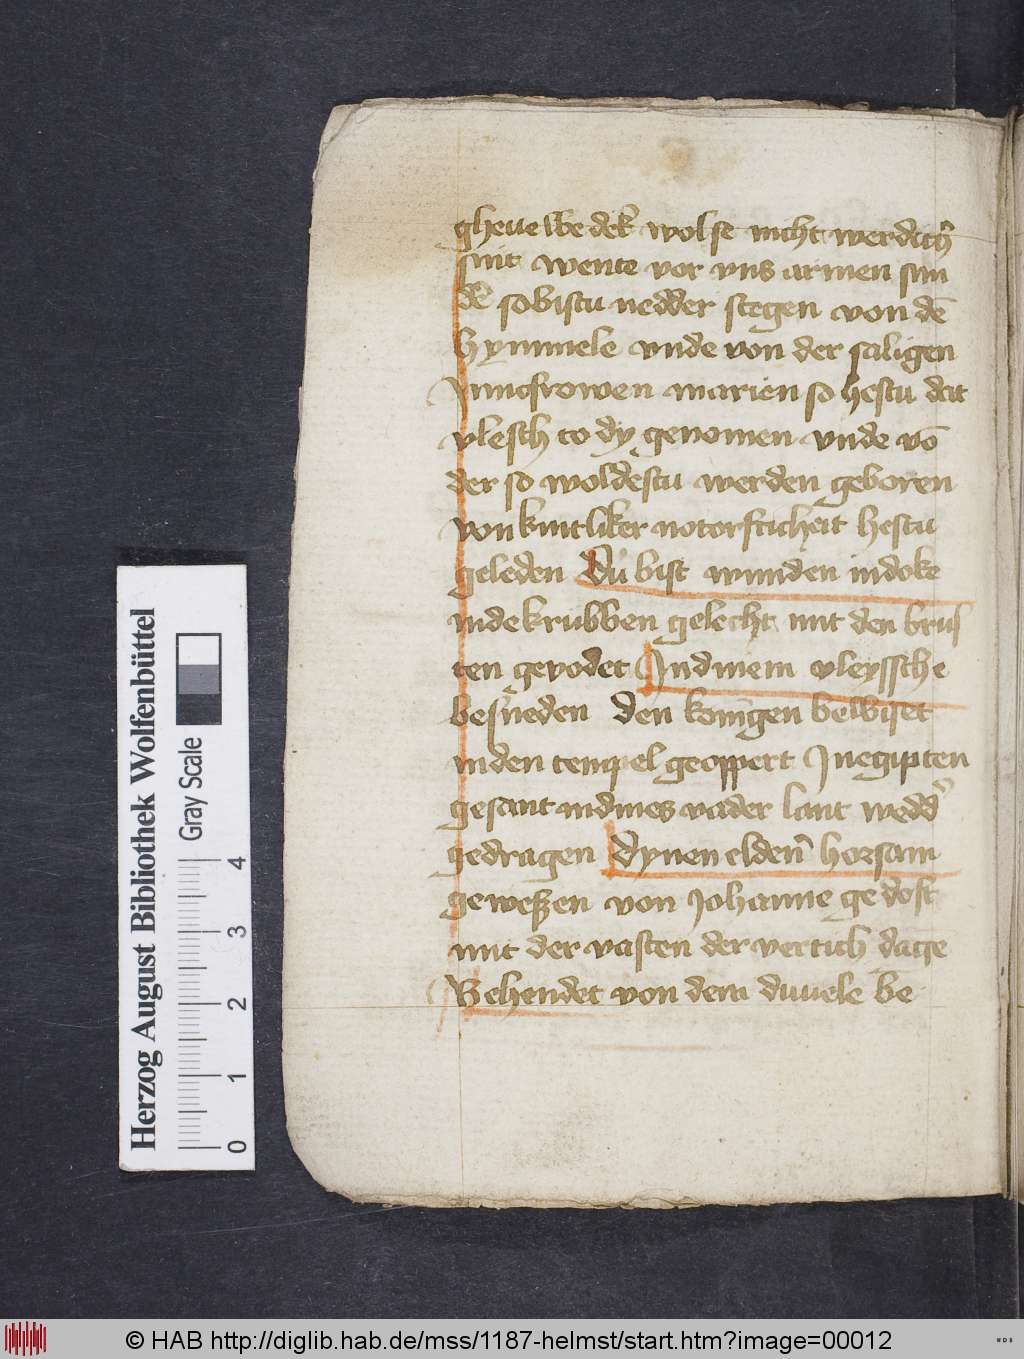 gheue we dek̄ wol se nicht werdich̄
sint wente vor vns armen sun
dē so bistu nedder stegen von dē
hymmele vnde von der saligen
Juncfrowen marien so hestu dat
vlesch to dy genomen vnde vō
der so woldestu werden geboren
von kintliker notorfticheit hestu
geleden Du bist wunden in doke
in de krubben gelecht mit den brus
ten gevodet In dinem vleyssche
besneden den konīgen bewiset
in den tempel geoppert In egipten
gesant in dines vader lant wedd̄
gedragen Dynen elden̄ horsam
geweszen von Johanne gedoft
mit der vasten der vertich dage
Behendet von dem duuele be
Herzog August Bibliothek Wolfenbüttel
Gray Scale
0 1 2 3 4
© HAB http://diglib.hab.de/mss/1187-helmst/start.htm?image=00012
WDB